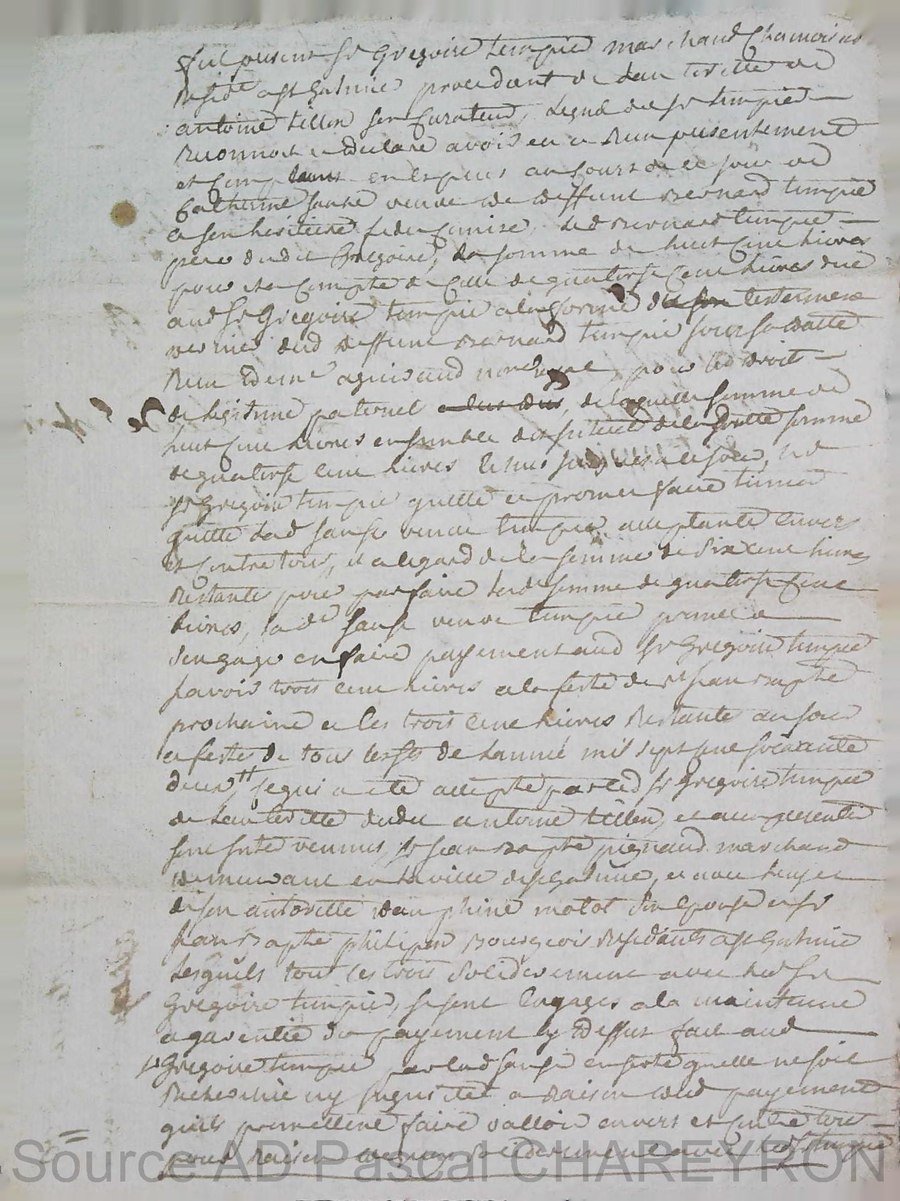 fut present Sr Gregoire tempié marchand Chamoiseur
residt a St Galmier procedant de lauthorité de
antoine tillon son Curateur, Lequel dit Sr tempié
reconnoit et declare avoir eu et receu presentement
et Comptant en especes au cours de ce jour de
Catherine sause veuve de deffunt Bernard tempié
et son heritiere fideicomise, led Bernard tempié
pere dudit Gregoire, la somme de huit Cent livres
pour et a Compte de Celle de quatorze Cent livres due
aud Sr Gregoire tempié a la forme du testement
dernier dud deffunt Bernard tempié sous sa datte
receu par me aguiraud notaire pour led droit
de légitime paternel, de laquelle somme de
huit Cent livres ensemble des de lad somme
de quatorze Cent livres jusques a ce jour, led
Sr Gregoire tempié quitte et promet faire tenir
quitte lad sause veuve tempié acceptante envers
et contre tous, et a legard de la somme de six Cent livres
restante pour parfaire lad somme de quatorze Cent
livres, lad sause veuve tempié promet et
s'engage en faire payement aud Sr Gregoire tempié
savoir trois Cent livres a la feste de St jean Bapte
prochaine et les trois Cent livres restante au jour
et feste de tous les Sts de l'année mil sept Cent soixante
deux, ce qui a eté accepté par led Sr Gregoire tempié
de lauthorité dudit antoine tillon, et aux presentes
sont intervenus, Sr jean Bapte pignaud marchand
demeurant en la ville de St Galmier, et avec luy et
de son authorité dauphine matot son epouse et Sr
jean Bapte philipon Bourgeois residants a St Galmier
Lesquels tous les trois Solidairement avec led Sr
Gregoire tempié, se sont Engagés a la maintenue
et garentie du payement cy dessus fait aud
Sr Gregoire tempié par lad sause en sorte quelle ne soit
recherchée ny inquietée a raison dud payement
quils promettent faire valloir envers et contre tous
pour raison de quoy solidairement avec led Sr tempié
Source AD Pascal CHAREYRON